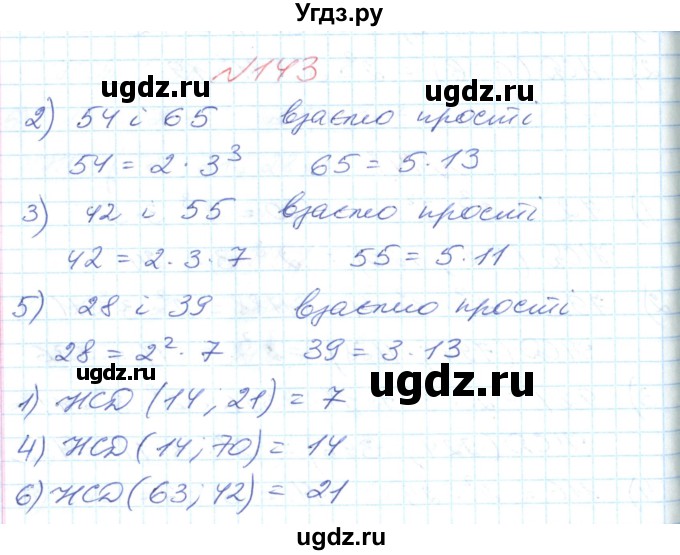 Угдз.ру
ugdz.ru ugdz.ru
№143
2) 54 і 65 взаємо прості
54 = 2 · 3³ 65 = 5 · 13
3) 42 і 55 взаємо прості
42 = 2 · 3 · 7 55 = 5 · 11
5) 28 і 39 взаємо прості
28 = 2² · 7 39 = 3 · 13
ugdz.ru
ugdz.ru
1) НСД (14; 21) = 7
4) НСД (14; 70) = 14
6) НСД (63; 42) = 21
ugdz.ru